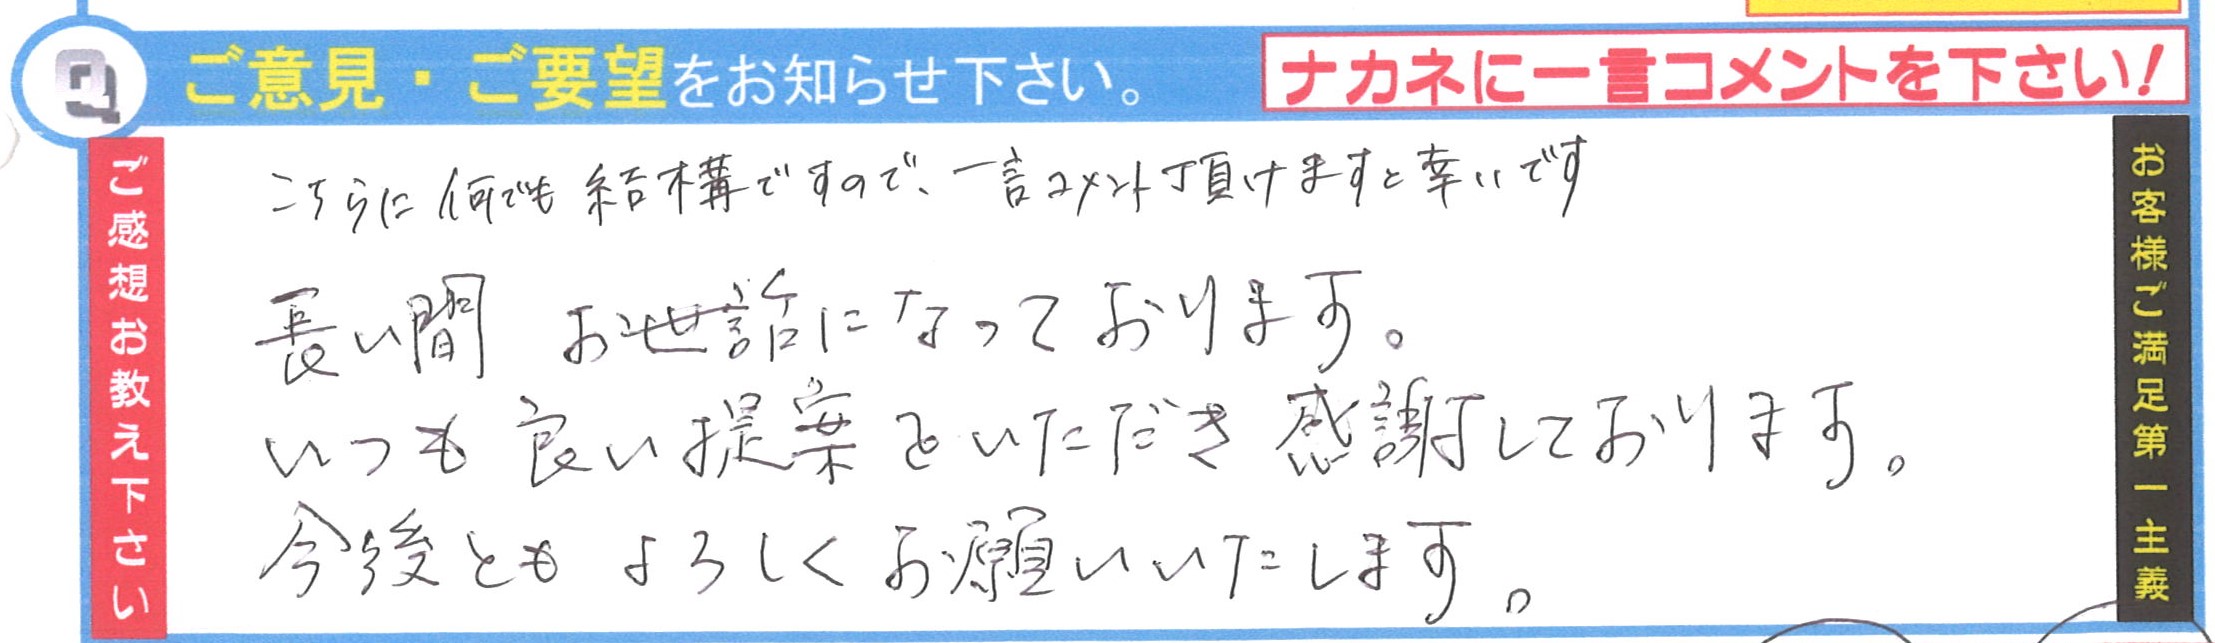 Q ご意見・ご要望をお知らせ下さい。
ナカネに一言コメントを下さい!
ご感想お教え下さい
こちらに何でも結構ですので、一言コメント頂けますと幸いです
長い間 お世話になっております。
いつも良い提案をいただき感謝しております。
今後ともよろしくお願いいたします。
お客様ご満足第一主義